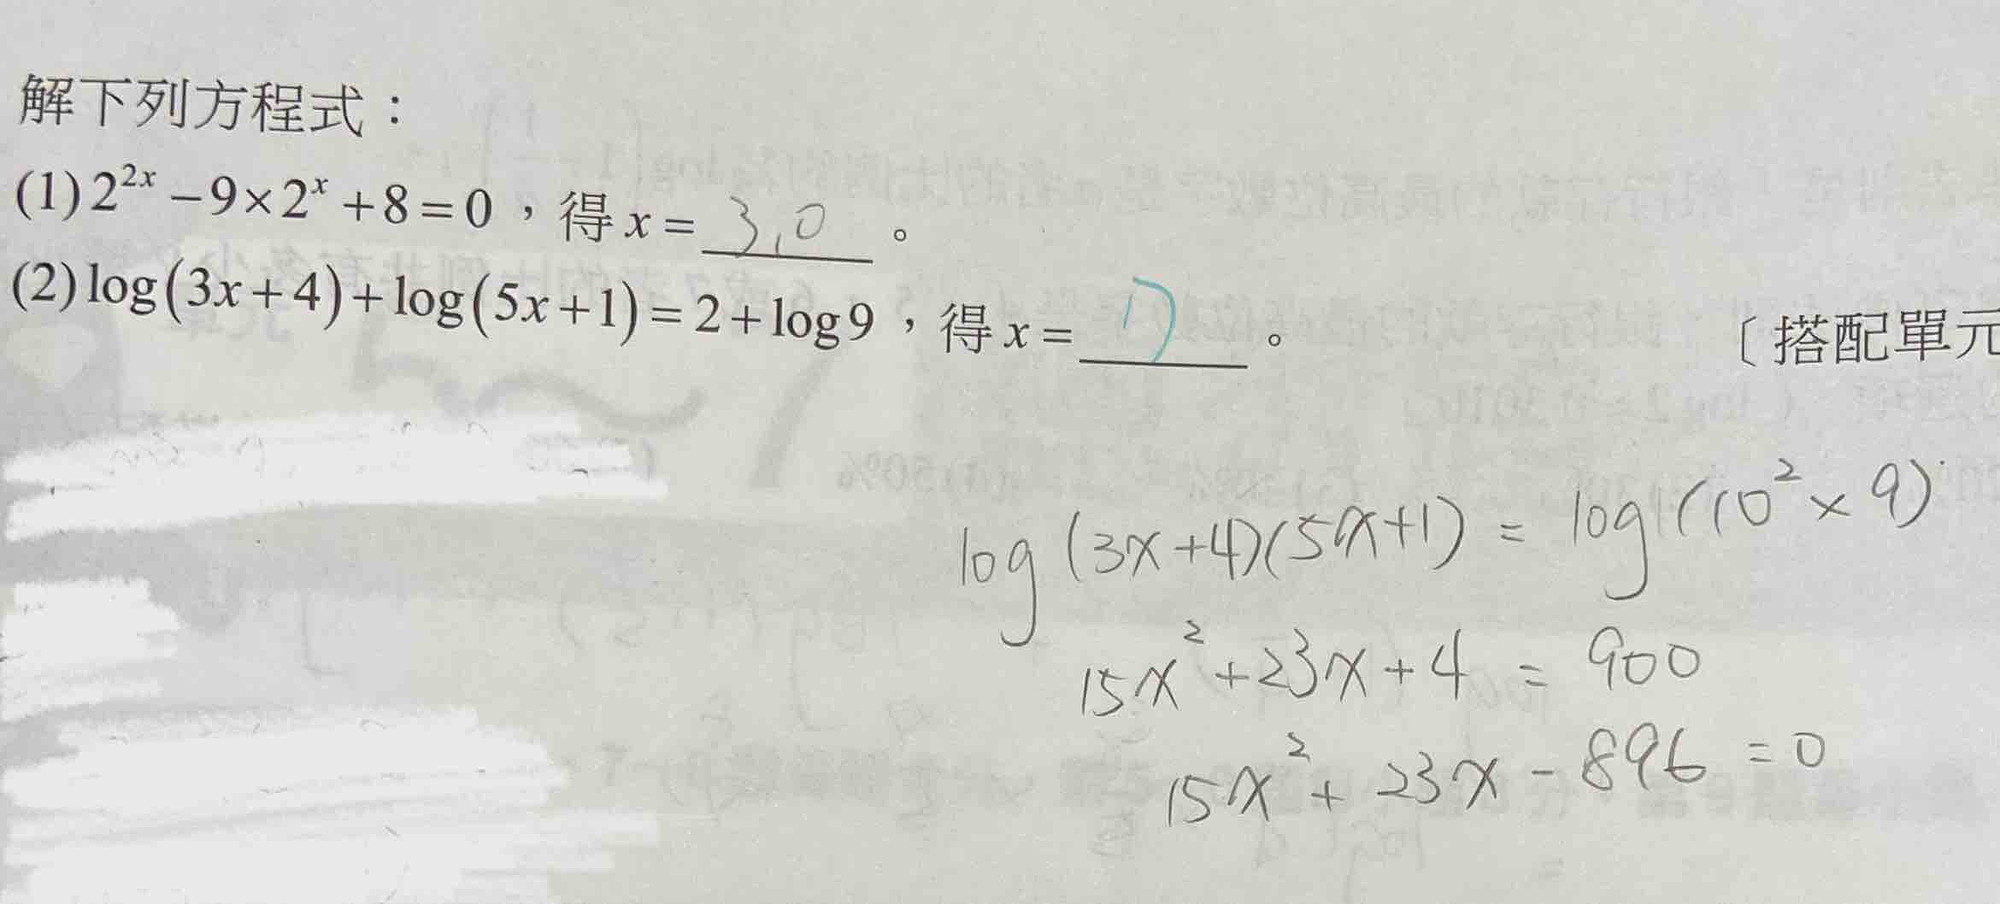 解下列方程式：
(1) 2^{2x} − 9 × 2^x + 8 = 0，得 x = 3,0。
(2) log(3x + 4) + log(5x + 1) = 2 + log 9，得 x = 。
〔搭配單元
log (3x+4)(5x+1) = log (10² × 9)
15x² + 23x + 4 = 900
15x² + 23x − 896 = 0